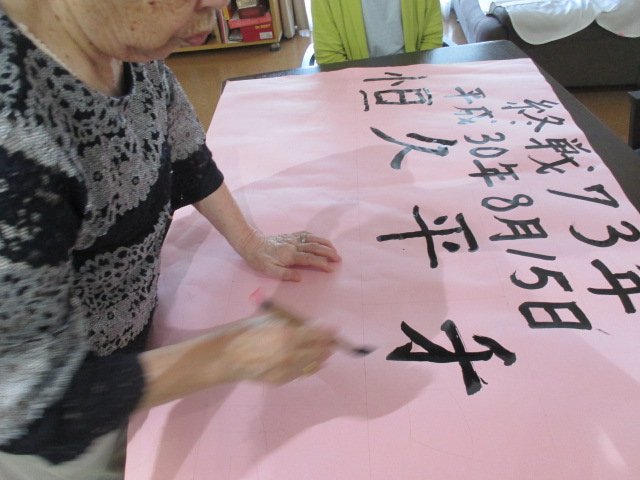 終戦73年
平成30年8月15日
恒久平